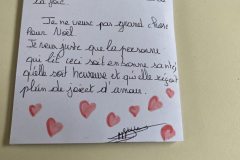 la joie.
Je ne veux pas grand chose
pour Noël
Je veux juste que la personne
qui lit ceci soit en bonne santé,
qu'elle soit heureuse et qu'elle reçoit
plein de jouet d'amour.